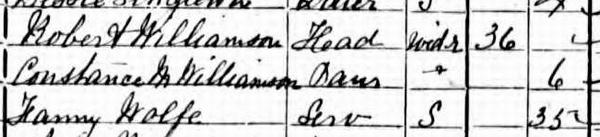 Robert Williamson Head Widr 36
Constance M Williamson Daur 6
Fanny Wolfe Serv S 35